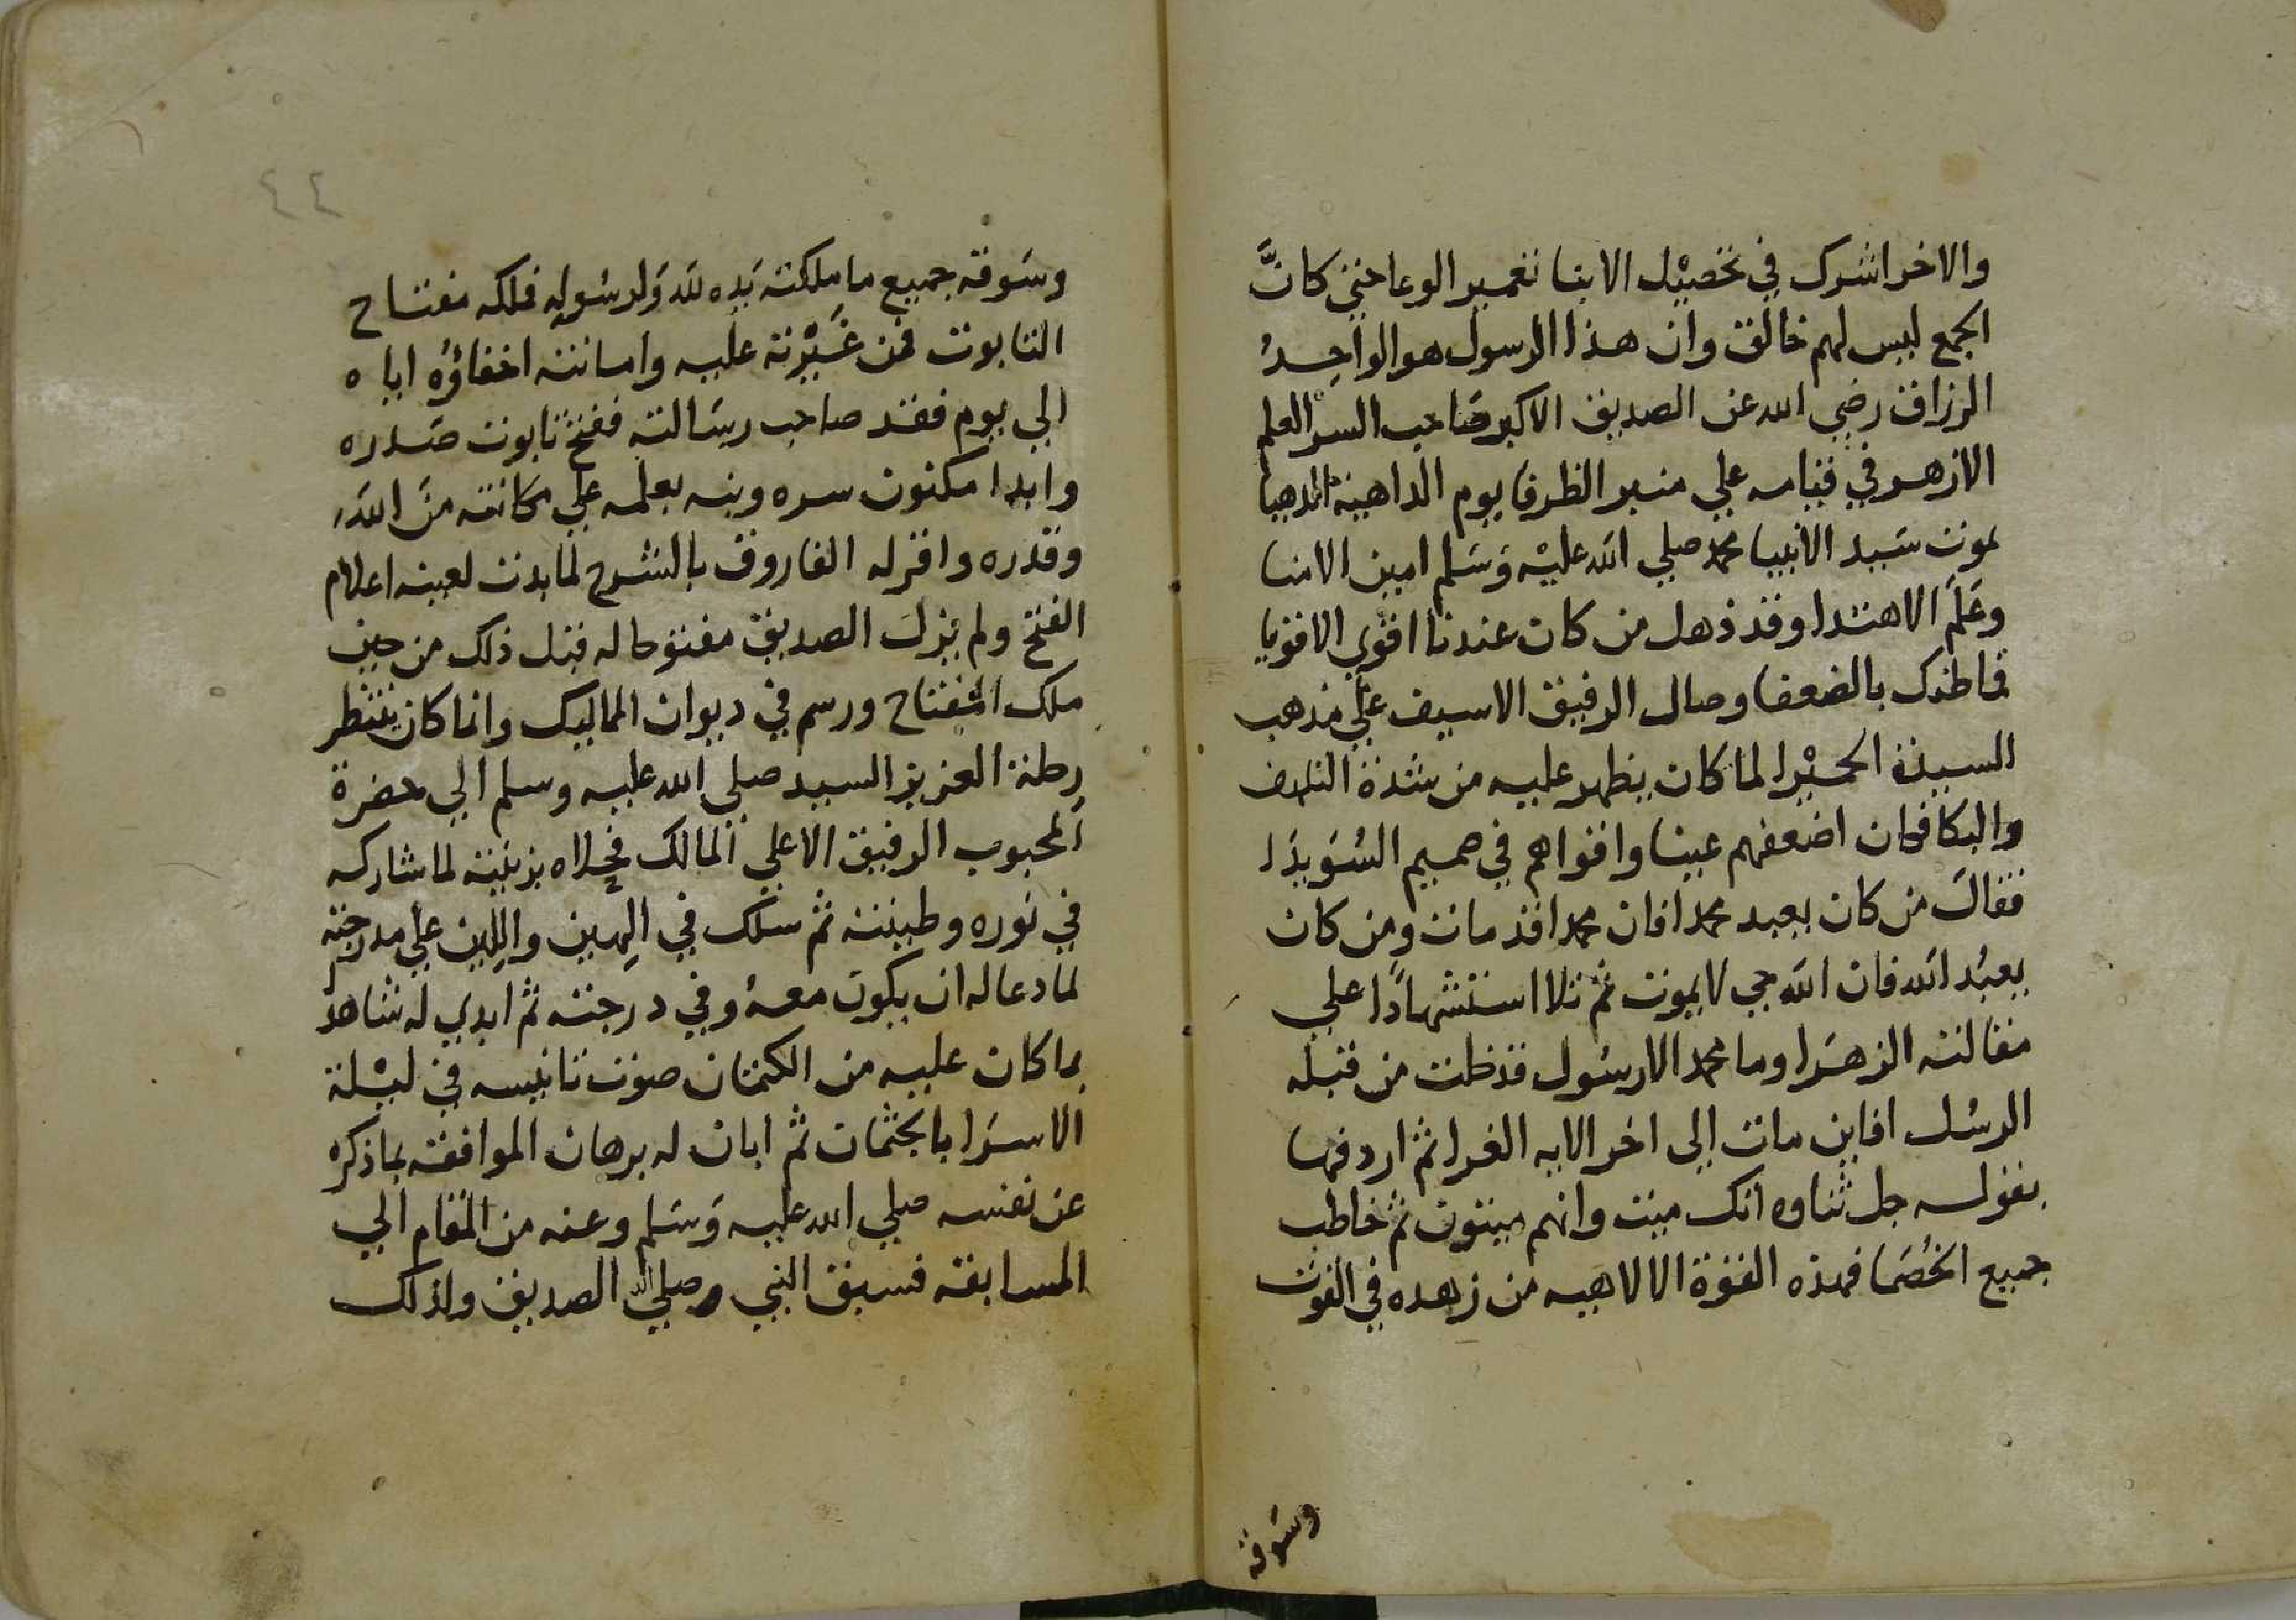 والاخر اشرك في تحصيل الابنا تعمير الوعا حتى كانَّ
الجمع ليس لهم خالق وان هذا الرسول هو الواحِدُ
الرزاق رضي الله عن الصديق الاكبر صَاحب السر العلم
الازهر في قيامه علي منبر الظرفا يوم الداهية الدهيا
لموت سَيد الانبيا محمد صلي الله عليْه وَسَلم امين الامنا
وعَلَم الاهتدا وقد ذهل من كان عندنا اقوي الاقويا
فما ظنك بالضعفا وصال الرفيق الاسيف علي مذهب
السيدة الحميْرا لما كان يظهر عليه من شدة التلهف
والبكا فكان اضعفهم عينا واقواهم في صميم السُوَيدَا
فقالَ من كان يعبد محمدا فان محمدا قد مات ومن كان
يعبُد الله فان الله حي لا يموت ثم تلا استشهادًا علي
مقالته الزهرَا وما محمد الا رسُول قد خلت من قبله
الرسُل افاين مات إلى اخر الايه الغرا ثم اردفها
بقوله جل ثناوه انك ميت وانهم ميتون ثم خاطب
جميع الخُصَما فهذه القوة الالاهيه من زهده في القوت
وسَوقه
٤٤
وسَوقه جميع ما ملكته يَده لله وَلرسُوله فلكه مفتاح
التابوت فمن غَيْرته عليه وامانته اخفاؤُه اياه
الي يوم فقد صاحب رسَالته ففتح تابوت صَدره
وابدا مكنون سره ونبه بعلمه علي مكانته منَ اللهَ
وقدره واقر له الفاروق بالشرح لما بدت لعينه اعلام
الفتح ولم يزل الصديق مفتوحا له قبل ذلك من حين
ملك المفتاح ورسم في ديوان المماليك وانما كان ينتظر
رحلة العزيز السيد صلي الله عليه وسلم الي حضرة
المحبوب الرفيق الاعلي المالك فحلاه بزينته لما شاركه
في نوره وطينته ثم سلك في الهين واللين علي مدرجته
لما دعا له ان يكون معهُ وفي درجته ثم ابدي له شاهد
بما كان عليه من الكتمان صوت تانيسه في ليْلة
الاسرَا بالجثمان ثم ابان له برهان الموافقة بما ذكره
عن نفسه صلي الله عليه وَسَلم وعنه من المقام الي
المسابقه فسبق النبي وصلي الصديق ولذلك